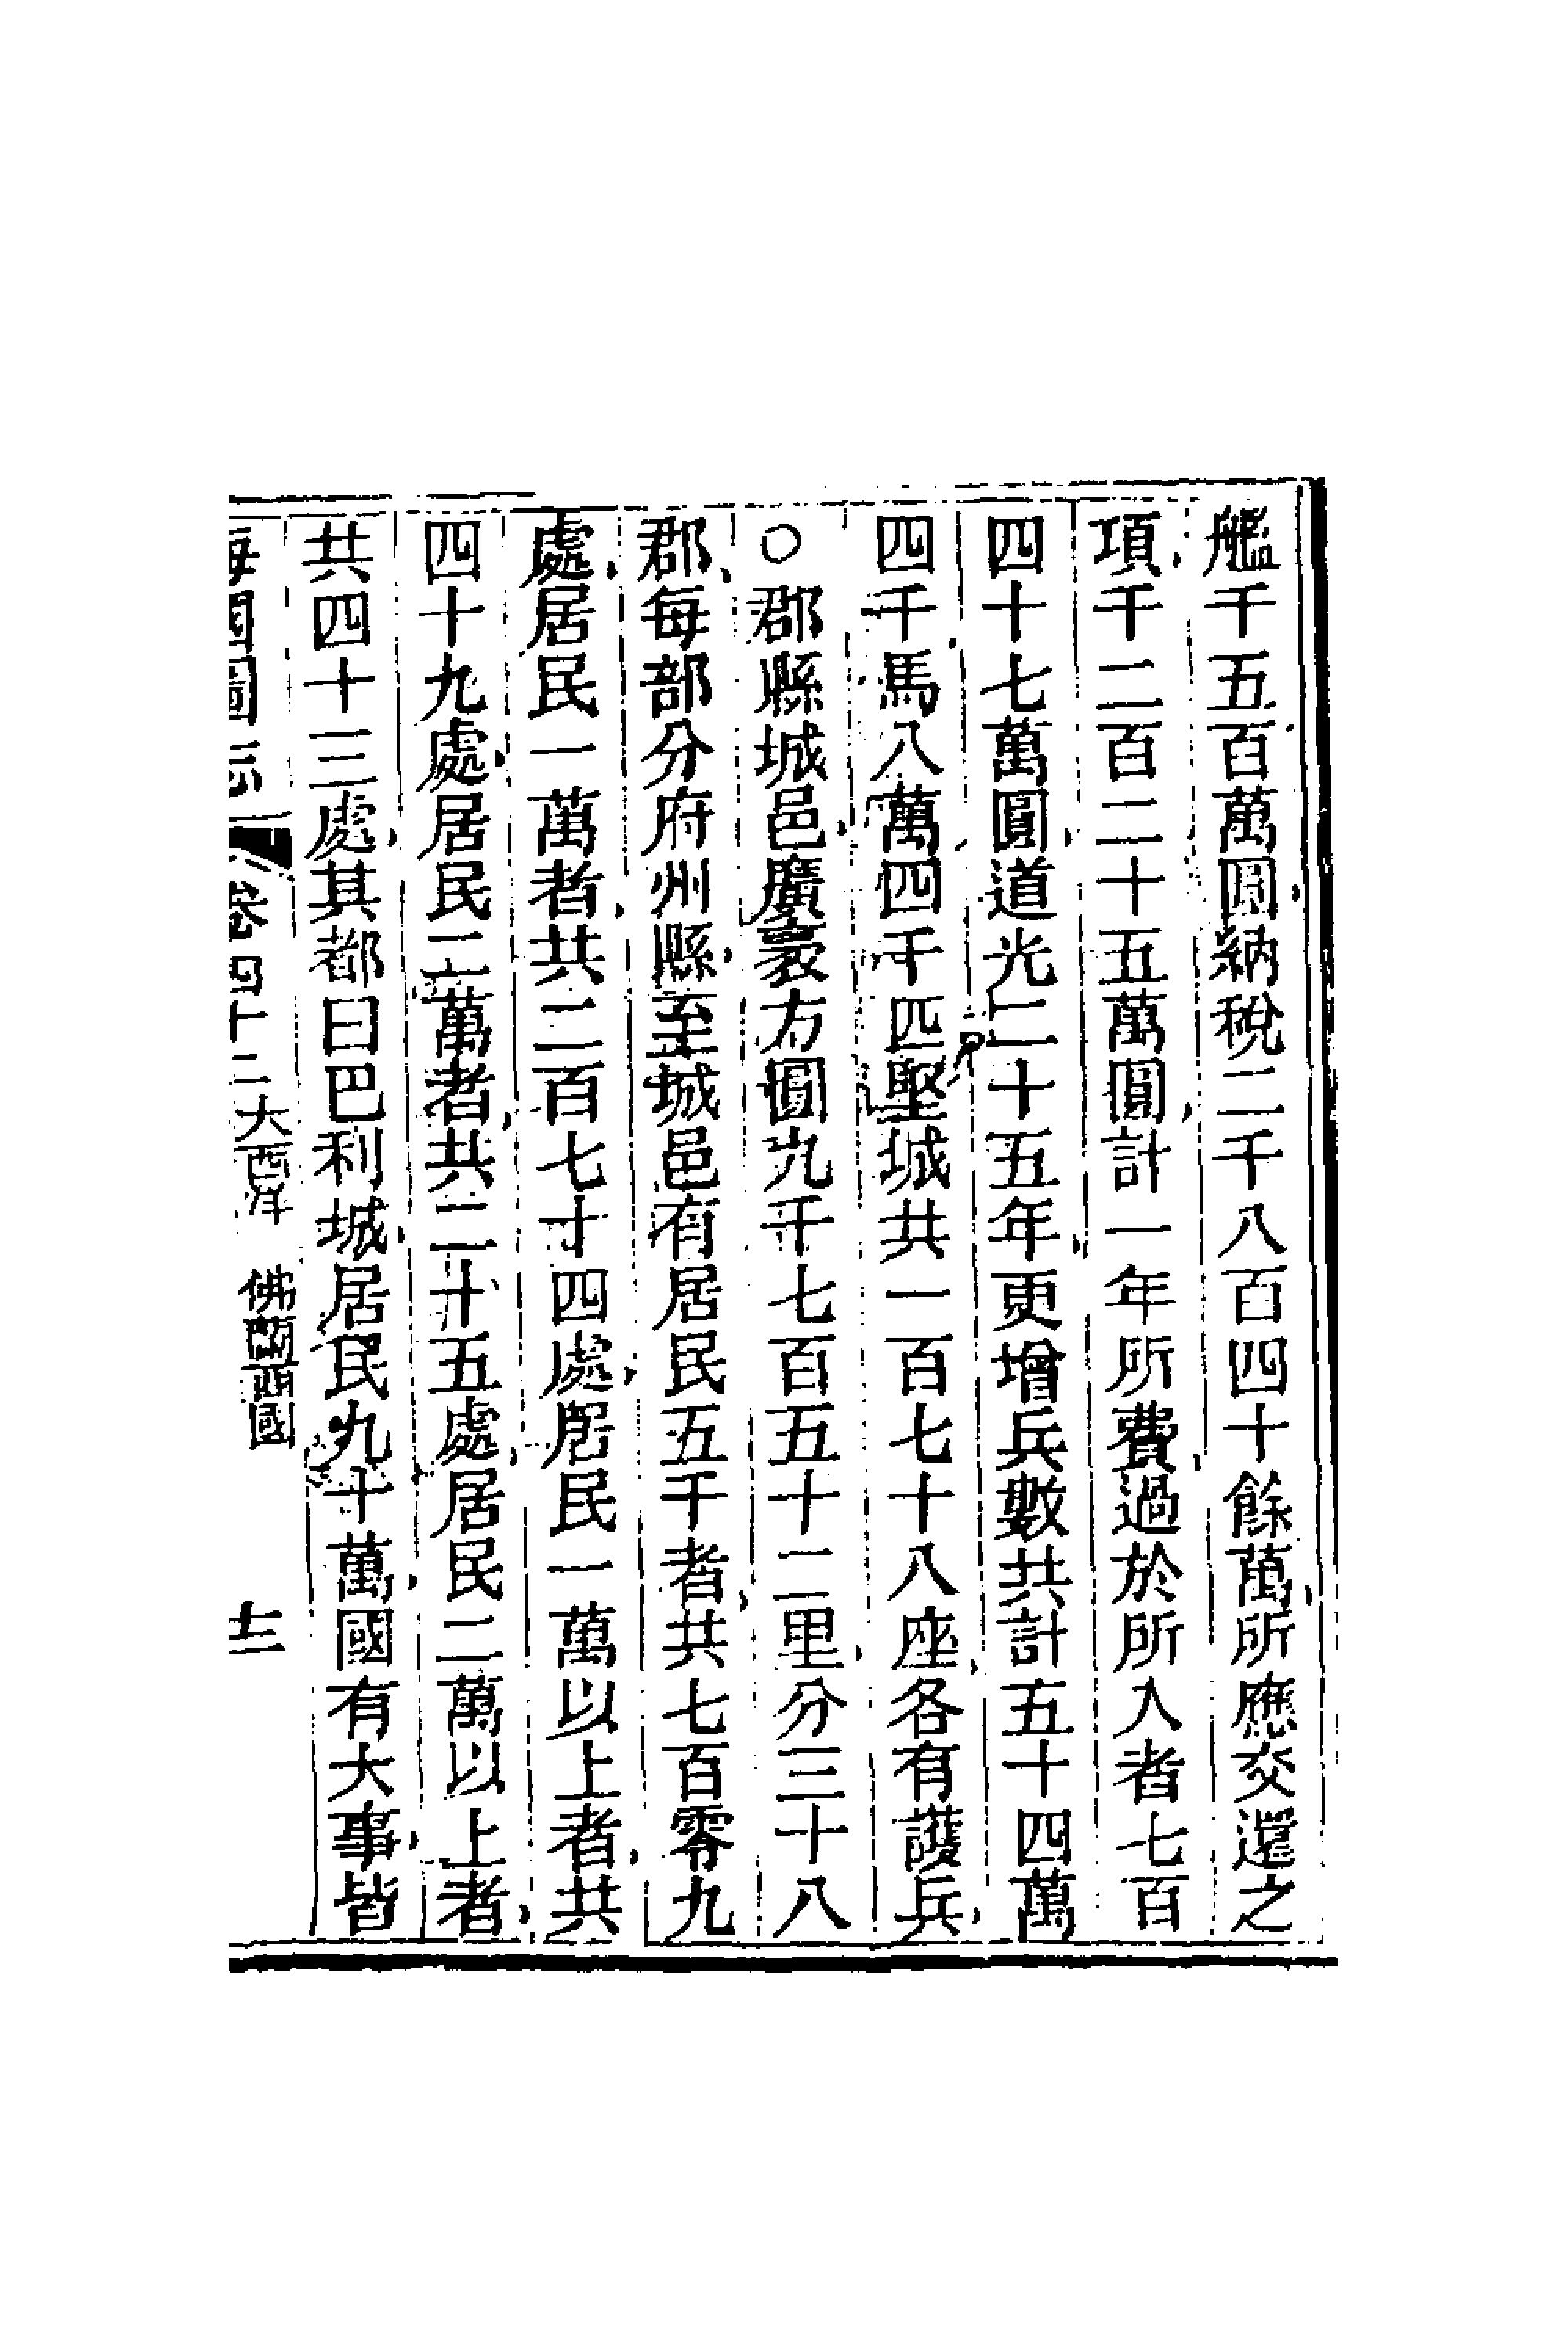 艦千五百萬圓納稅二千八百四十餘萬所應交還之
項千二百二十五萬圓計一年所費過於所入者七百
四十七萬圓道光二十五年更增兵數共計五十四萬
四千馬八萬四千匹堅城共一百七十八座各有護兵
○郡縣城邑廣袤方圓九千七百五十二里分三十八
郡每部分府州縣至城邑有居民五千者共七百零九
處居民一萬者共二百七十四處居民一萬以上者共
四十九處居民二萬者共二十五處居民二萬以上者
共四十三處其都曰巴利城居民九十萬國有大事皆
海國圖志 卷四十二 大西洋 佛蘭西國 十三